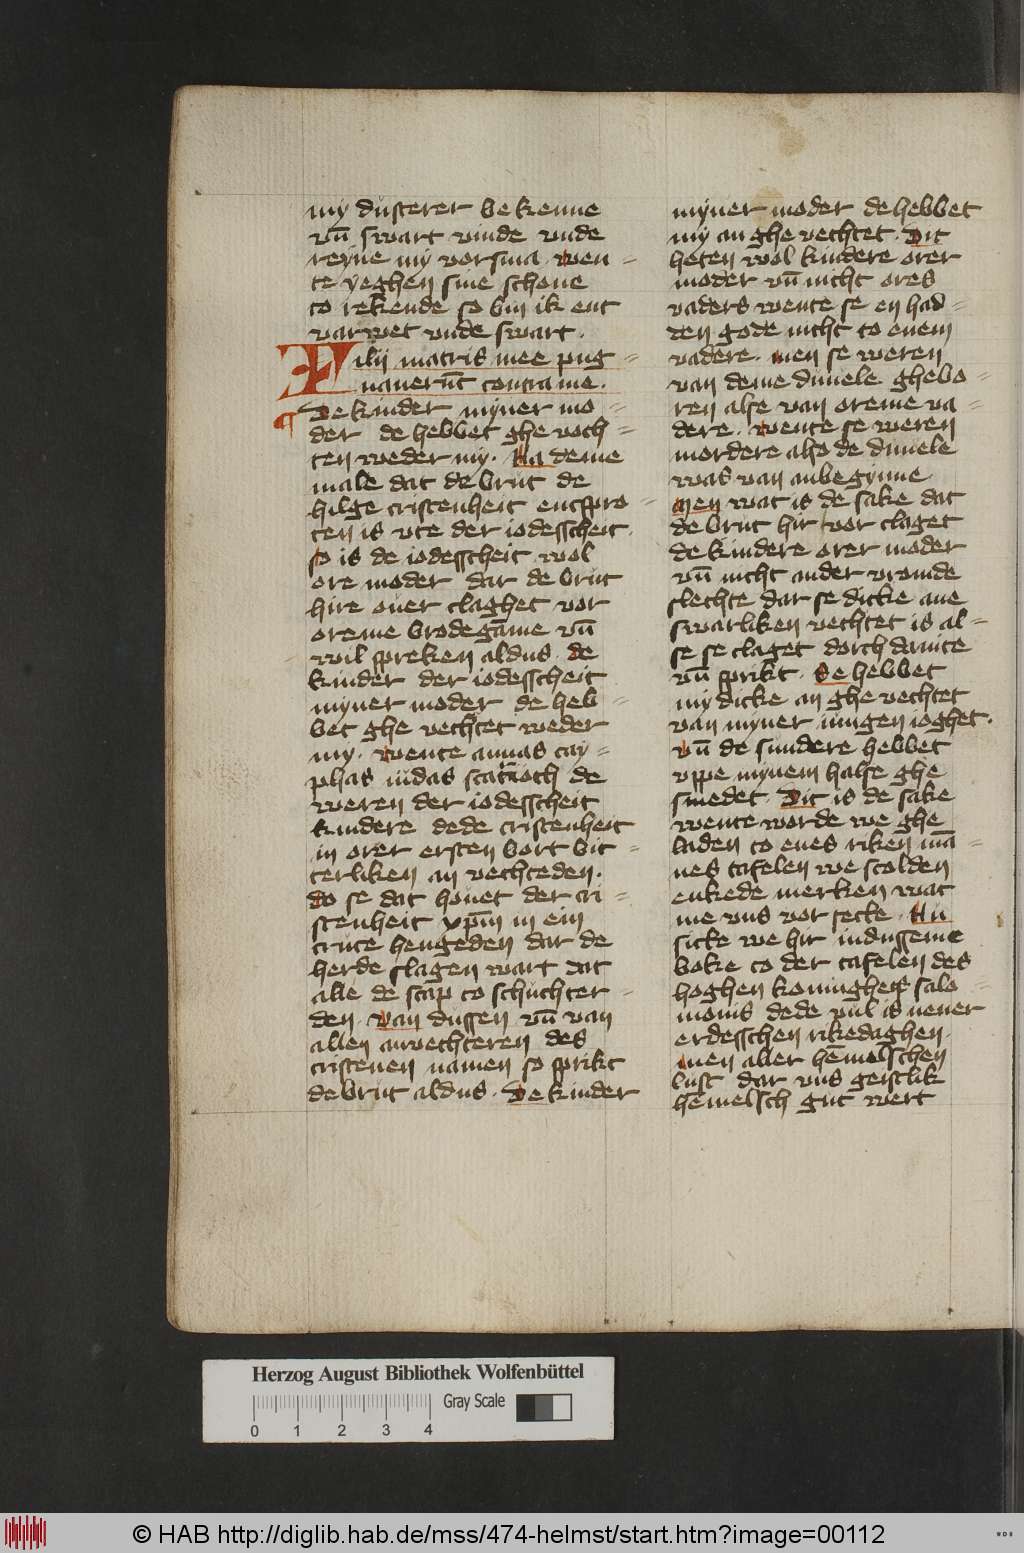 my dusterer bekenne
vn̄ swart vinde vnde
reyne my vorsma. wen=
te yeghen sine schone
to rekende so bin ik ent
varwet vnde swart.
Filij matris mee pug=
nauerūt contra me.
¶ De kinder myner mo=
der de hebbet ghe voch=
ten weder my. Na deme
male dat de brut de
hilge cristenheit entspro=
ten is vte der iodesscheit.
so is de iodesscheit wol
ore moder dar de brut
hire ouer claghet vor
oreme brodegāme vn̄
wil spreken aldus. de
kinder der iodesscheit
myner moder de heb=
bet ghe vechtet weder
my. wente annas cay=
phas iudas scarioth de
weren der iodesscheit
kindere dede cristenheit
in orer ersten bort bit=
terliken an vechteden.
do se dat houet der cri=
stenheit xp̄m in ein
cruce hengeden dar de
herde slagen wart dat
alle de scap to schuchter=
den. van dussen vn̄ van
allen anvechteren des
cristenen namen so sprikt
de brut aldus. De kinder
myner moder de hebbet
my an ghe vechtet. Dit
heten wol kindere orer
moder vn̄ nicht ores
vaders wente se en had=
den gode nicht to enem
vadere. men se weren
van deme duuele ghebo=
ren alse van oreme va=
dere. wente se weren
mordere also de duuele
was van anbegynne
men wat is de sake dat
de brut hir vor claget
de kindere orer moder
vn̄ nicht ander vromde
slechte dar se dicke ane
swarliken vechtet is al=
se se claget dorch damite
vn̄ sprikt. Se hebbet
my dicke an ghe vechtet
van myner iungen ioghet.
vn̄ de sundere hebbet
vppe mynem halse ghe
smedet. Dit is de sake
wente worde we ghe
laden to enes riken mā=
nes tafelen we scolden
enkede merken wat
me vns vor secke. Nu
sicke we hir in dusseme
boke to der tafelen des
hoghen koninghes salo=
monis dede vul is nener
erdesschen rikedaghen.
men aller hēmelschen
lust dar vns geistlik
hēmelsch gut wert
Herzog August Bibliothek Wolfenbüttel
Gray Scale
0 1 2 3 4
© HAB http://diglib.hab.de/mss/474-helmst/start.htm?image=00112